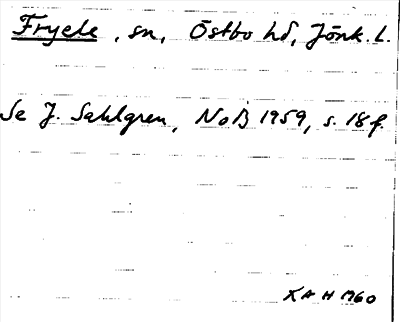 Fryele, sn, Östbo hd, Jönk. l.
Se J. Sahlgren, NoB 1959, s. 18 f.
KA H 1960